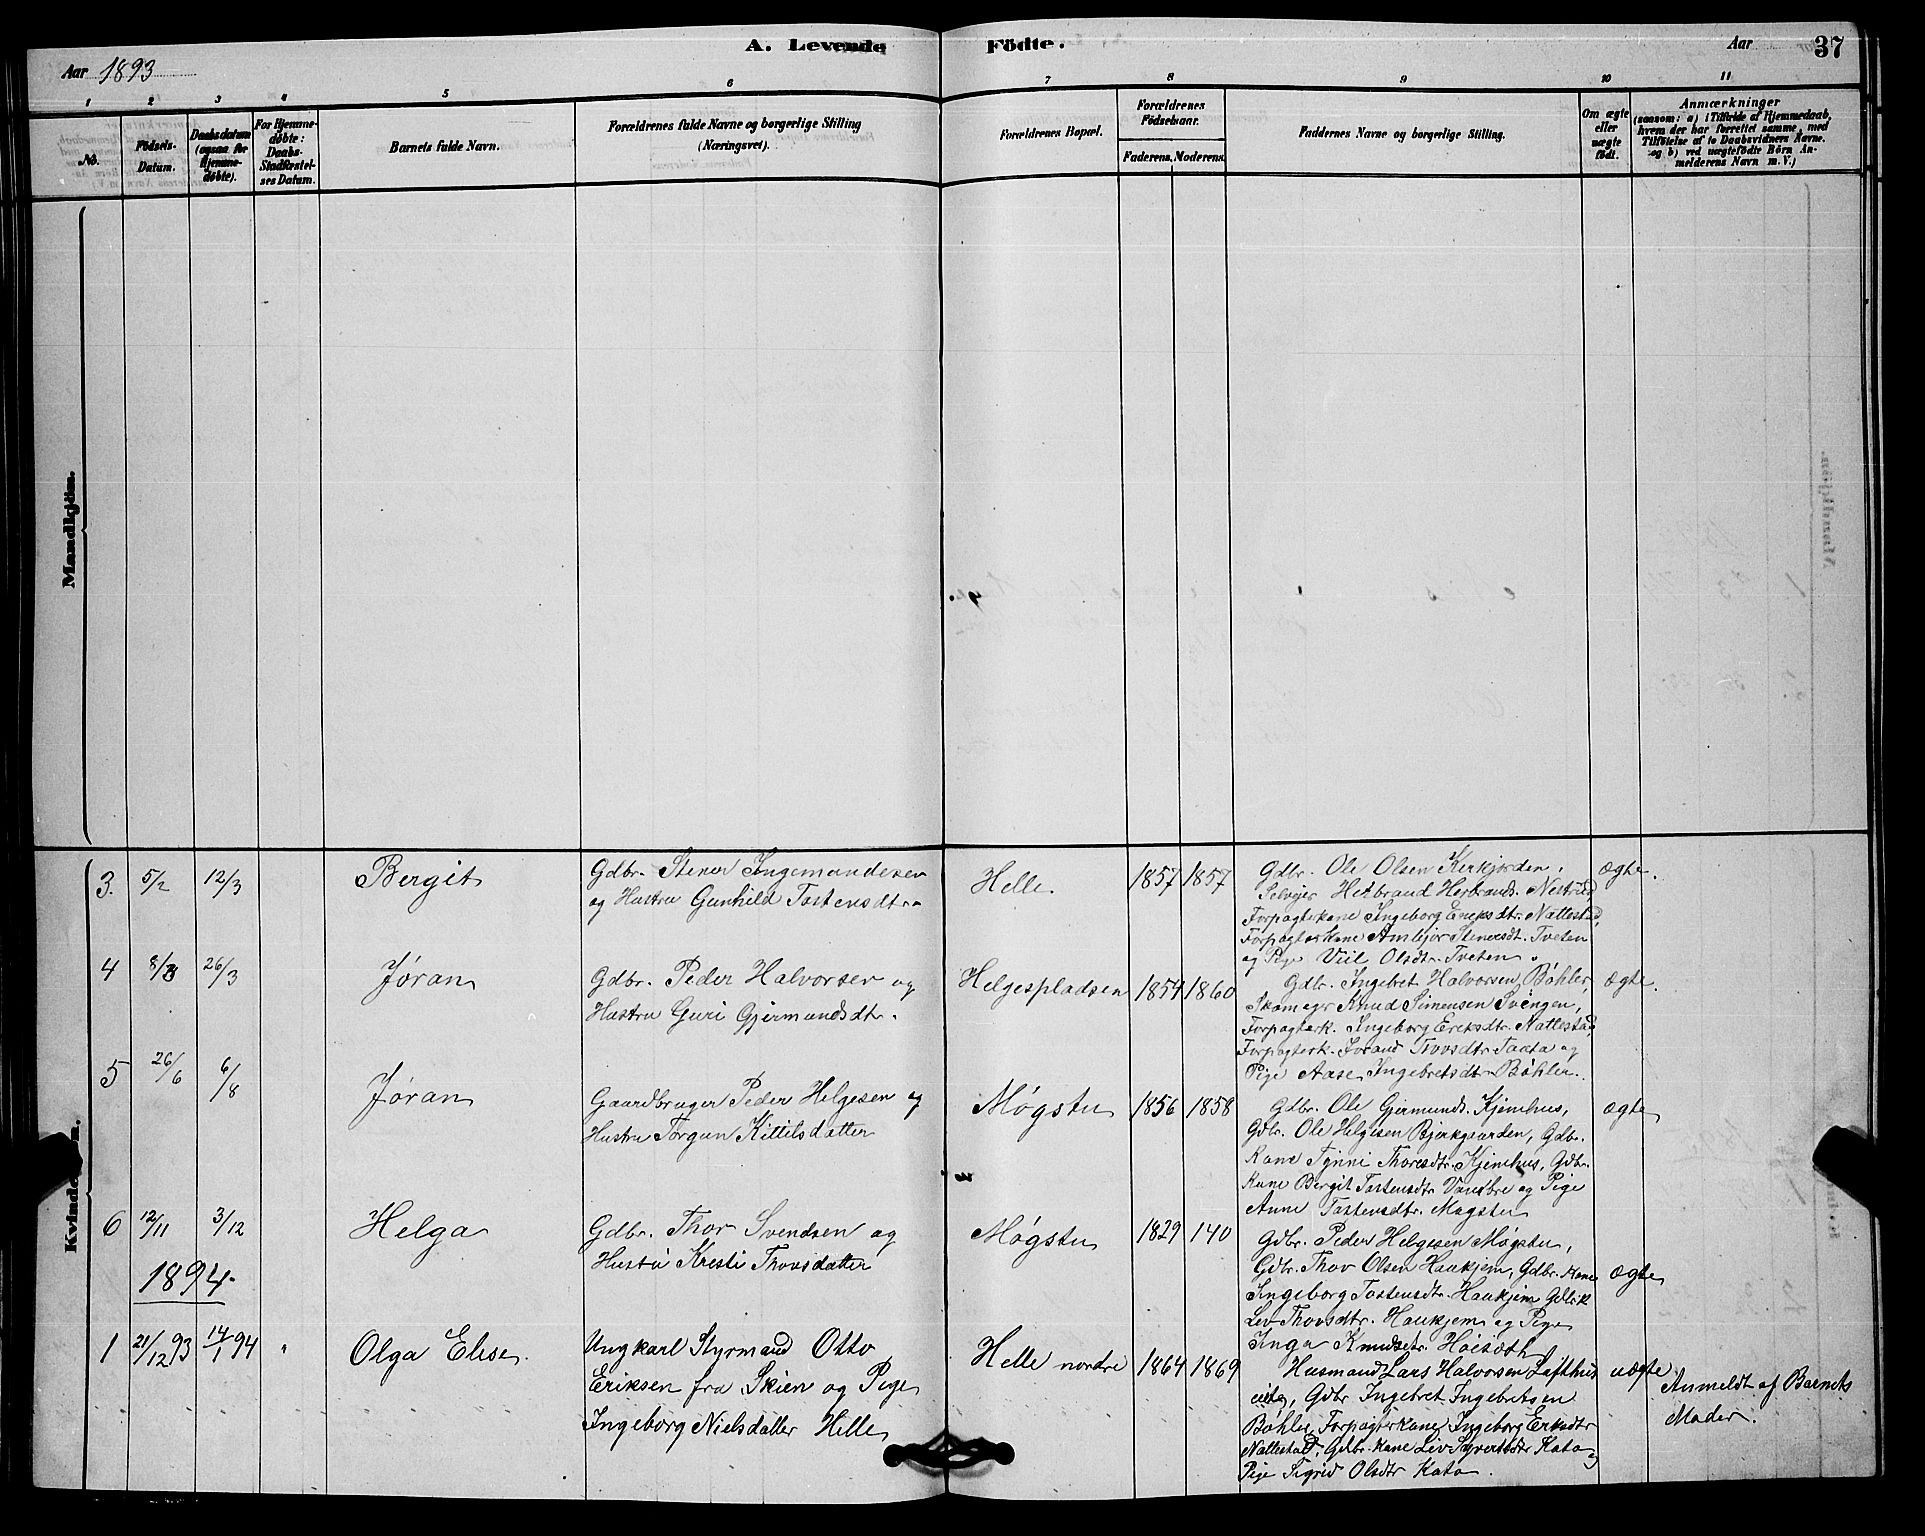 A. Levende Födte.
Aar 1893
Aar
37
1 2 3 4 5 6 7 8 9 10 11
No.
Födsels-Datum.
Daabsdatum (ogsaa for Hjemmedøbte).
For Hjemmedøbte: Daabs-Stadfæstelses Datum.
Barnets fulde Navn.
Forældrenes fulde Navne og borgerlige Stilling (Næringsvei).
Forældrenes Bopæl.
Forældrenes Födselsaar.
Faderens. Moderens.
Faddernes Navne og borgerlige Stilling.
Om ægte eller uægte födt.
Anmærkninger
(saasom: a) i Tilfælde af Hjemmedaab, hvem der har forrettet samme, med Tilföielse af to Daabsvidners Navne. og b) ved uægtefödte Börn Anmelderens Navn m. V.)
Mandkjön.
Kvindekjön.
3. 5/2 12/3 Bergit
Gdbr. Stener Ingemundsen
og Hustru Gunhild Tostensdtr.
Helle 1857 1857
Gdbr. Ole Olsen Kirkjorden,
Selvejer Herbrand Herbrands. Nestrud,
Forpagterkone Ingeborg Eriksdtr. Nattestad,
Forpagterkone Ambjør Stenersdt. Tveten
og Pige Viil Olsdtr. Tveten.
ægte.
4 8/3 26/3 Jøran
Gdbr. Peder Halvorsen og
Hustru Guri Gjermundsdtr.
Helgespladsen 1854 1860
Gdbr. Ingebret Halvorsen Bøhler,
Skomagr Knud Simensen Svengen,
Forpagterk. Ingeborg Eriksdtr. Nattestad,
Forpagterk. Jorand Thovsdtr. Taata og
Pige Aase Ingebretsdtr Bøhler.
ægte.
5 26/6 6/8 Jøran
Gaardbruger Peder Helgesen og
Hustru Torgun Kittilsdatter
Møgstu 1856 1858
Gdbr. Ole Gjermunds. Kjemhus,
Gdbr. Ole Helgesen Bjerkgaarden, Gdbr.
Kone Tønni Thoresdtr. Kjemhus, Gdbr.
Kone Bergit Tostensdtr. og Pige
Anne Tostensdtr. Møgstu
ægte
6 12/11 3/12 Helga
Gdbr. Thor Svendsen og
Hustru Kristi Thovsdatter
Møgstu 1829 140
Gdbr. Peder Helgesen Møgstu,
Gdbr. Thov Olsen Haukjem, Gdbr. Kone
Ingeborg Tostensdtr. Haukjem Gdbrk
Liv Thovsdtr. Haukjem og Pige
Inga Knudsdtr.
ægte
1894.
1 21/12 93 14/1 94 " Olga Elise
Ungkarl Styrmand Otto
Eriksen fra Skien og Pige
Ingeborg Nielsdatter Helle
Helle nordre 1864 1869
Husmand Lars Halvorsen Lofthus
eie, Gdbr Ingebret Ingebretsen
Bøhler, Forpagterkone Ingeborg Eriksdtr
Nattestad, Gdbr. kone Liv Syvertsdtr Kata og
Pige Sigrid Olsdtr Kata.
uægte
Anmeldt af Barnets
Moder.